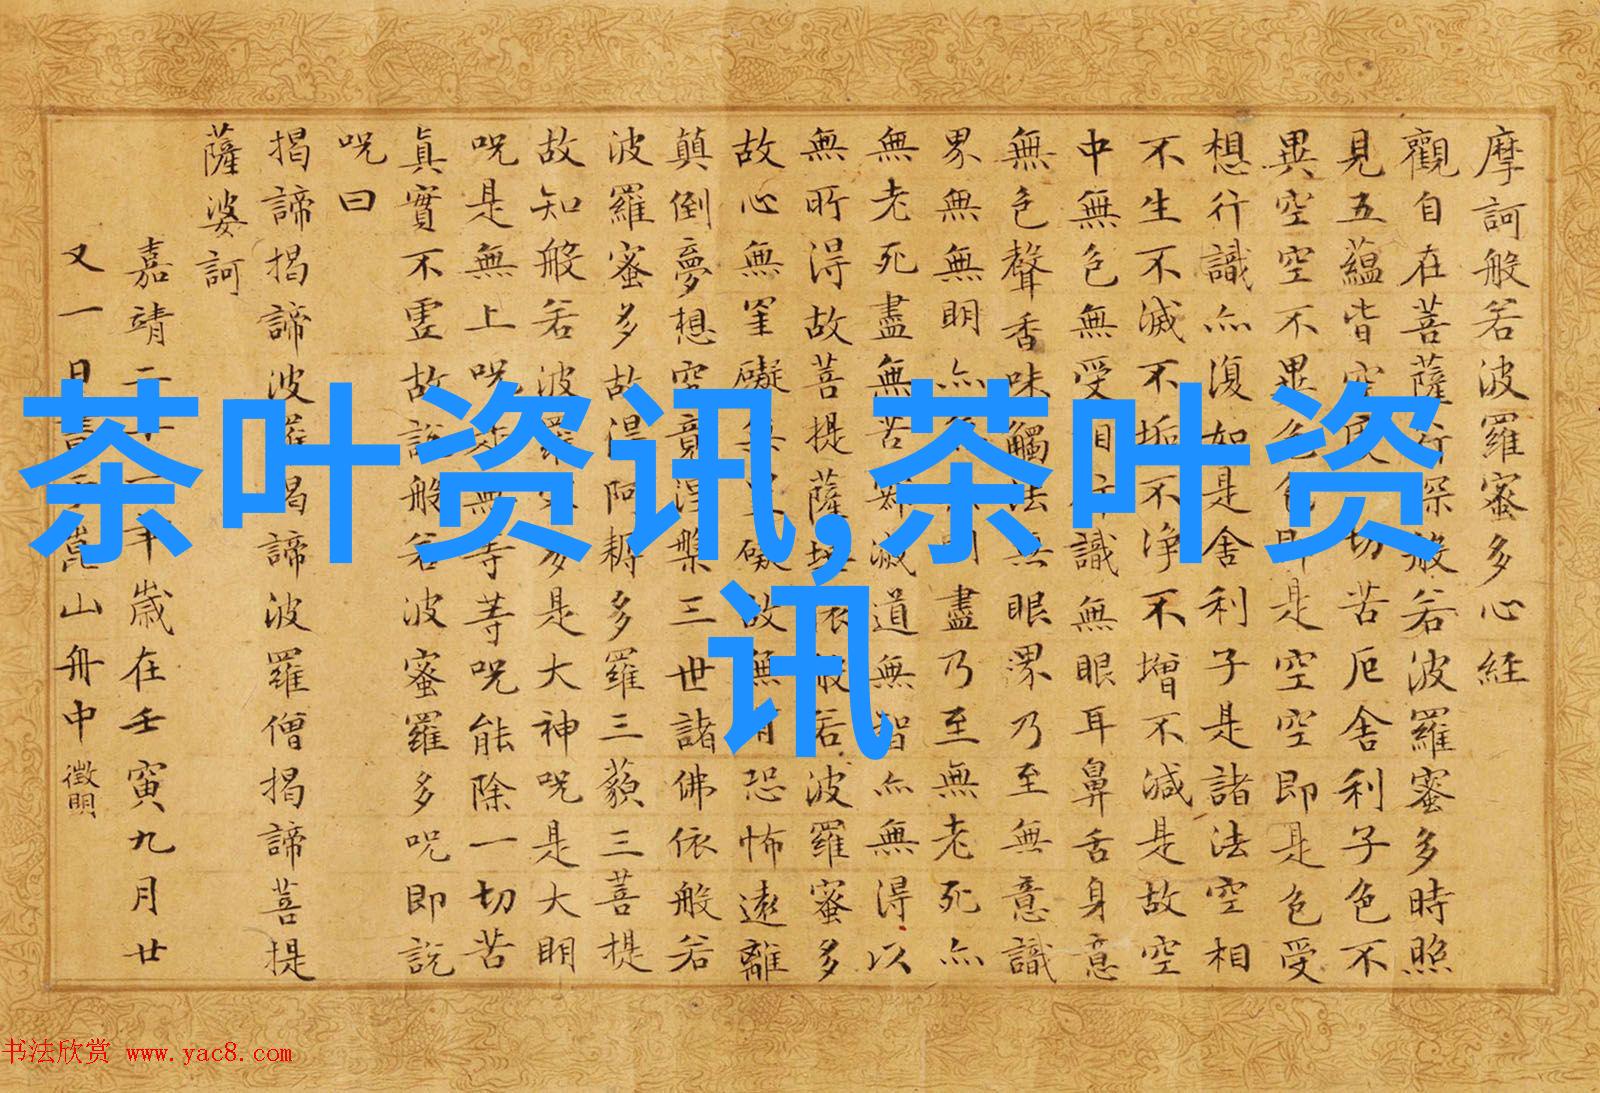 摩訶般若波羅蜜多心経
觀自在菩薩行深般若波羅蜜多時照
見五蘊皆空切苦厄舍利子色不
異空空不異色色即是空空即是色受
想行識亦復如是舍利子是諸法空相
不生不滅不垢不淨不增不減是故空
中無色無受想行識無眼耳鼻舌身意
無色聲香味觸法無眼界乃至無意識
界無無明亦盡乃至無老死亦
無老死盡無苦滅道無智亦無得以
無所得故菩提薩埵依般若波羅蜜多
故心無罣礙無罣礙故無有恐怖遠離
顛倒夢想究竟涅槃三世諸佛依般若
波羅蜜多故得阿耨多羅三藐三菩提
故知般若波羅蜜多是大神咒是大明
咒是無上咒是無等等咒能除一切苦
真實不虛故說般若波羅蜜多咒即說
咒曰
揭諦揭諦波羅揭諦波羅僧揭諦菩提
薩婆訶
嘉靖二十一年歲在壬寅九月廿
又一日書于嵩山舟中 徵明
茶叶资讯,茶叶资
讯
书法欣赏 www.yac8.com